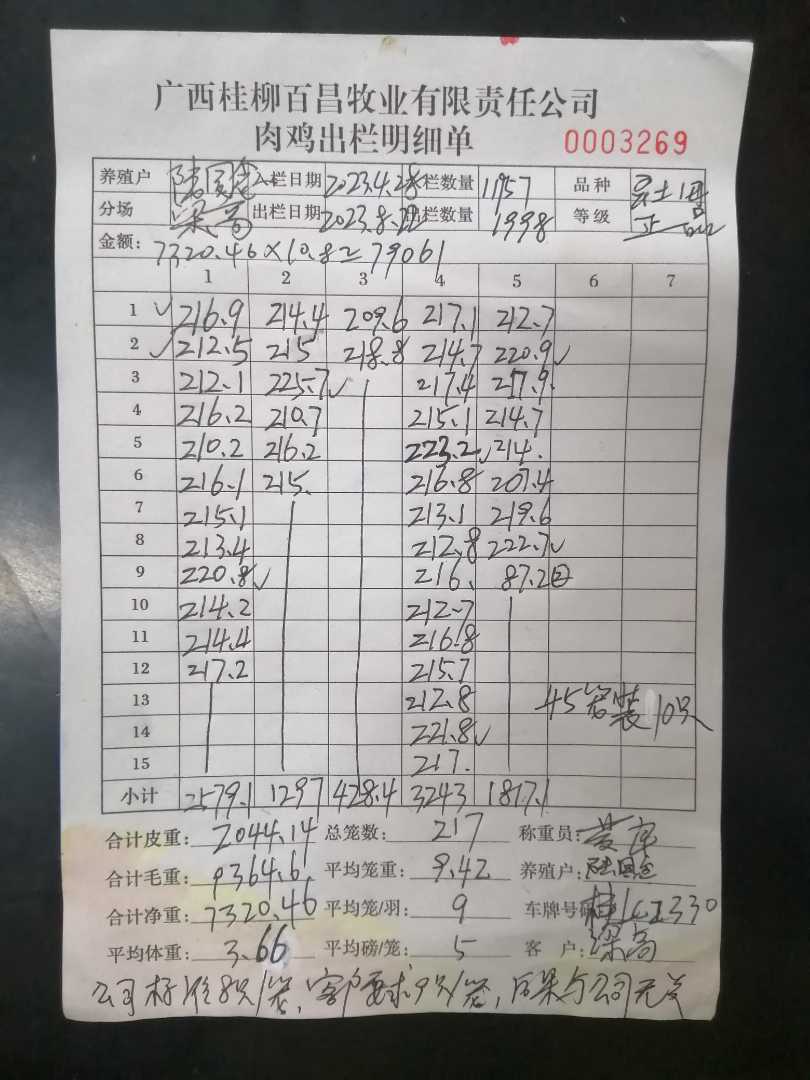 广西桂柳百昌牧业有限责任公司
肉鸡出栏明细单 0003269
养殖户 陆国 入栏日期 2023.4.28 栏数量 11957 品种 土
分场 梁高 出栏日期 2023.8.22 出栏数量 1998 等级 正品
金额: 7320.46×10.8=79061
1 2 3 4 5 6 7
1 ✓ 216.9 214.4 209.6 217.1 212.7
2 ✓ 212.5 215 218.8 214.7 220.9✓
3 212.1 225.7✓ 217.4 217.9
4 216.2 210.7 215.1 214.7
5 210.2 216.2 223.2✓ 214.
6 216.1 215. 216.8 207.4
7 215.1 213.1 219.6
8 213.4 212.8 222.7✓
9 220.8✓ 216. 87.2
10 214.2 212.7
11 214.4 216.8
12 217.2 215.7
13 212.8 45笼装10只
14 221.8✓
15 217.
小计 2579.1 1297 428.4 3243 1817.1
合计皮重: 2044.14 总笼数: 217 称重员:
合计毛重: 9364.6 平均笼重: 9.42 养殖户: 陆国
合计净重: 7320.46 平均笼/羽: 9 车牌号码 桂 2330
平均体重: 3.66 平均磅/笼: 5 客 户: 梁高
公司标准8只/笼,客户要求9只/笼,后果与公司无关